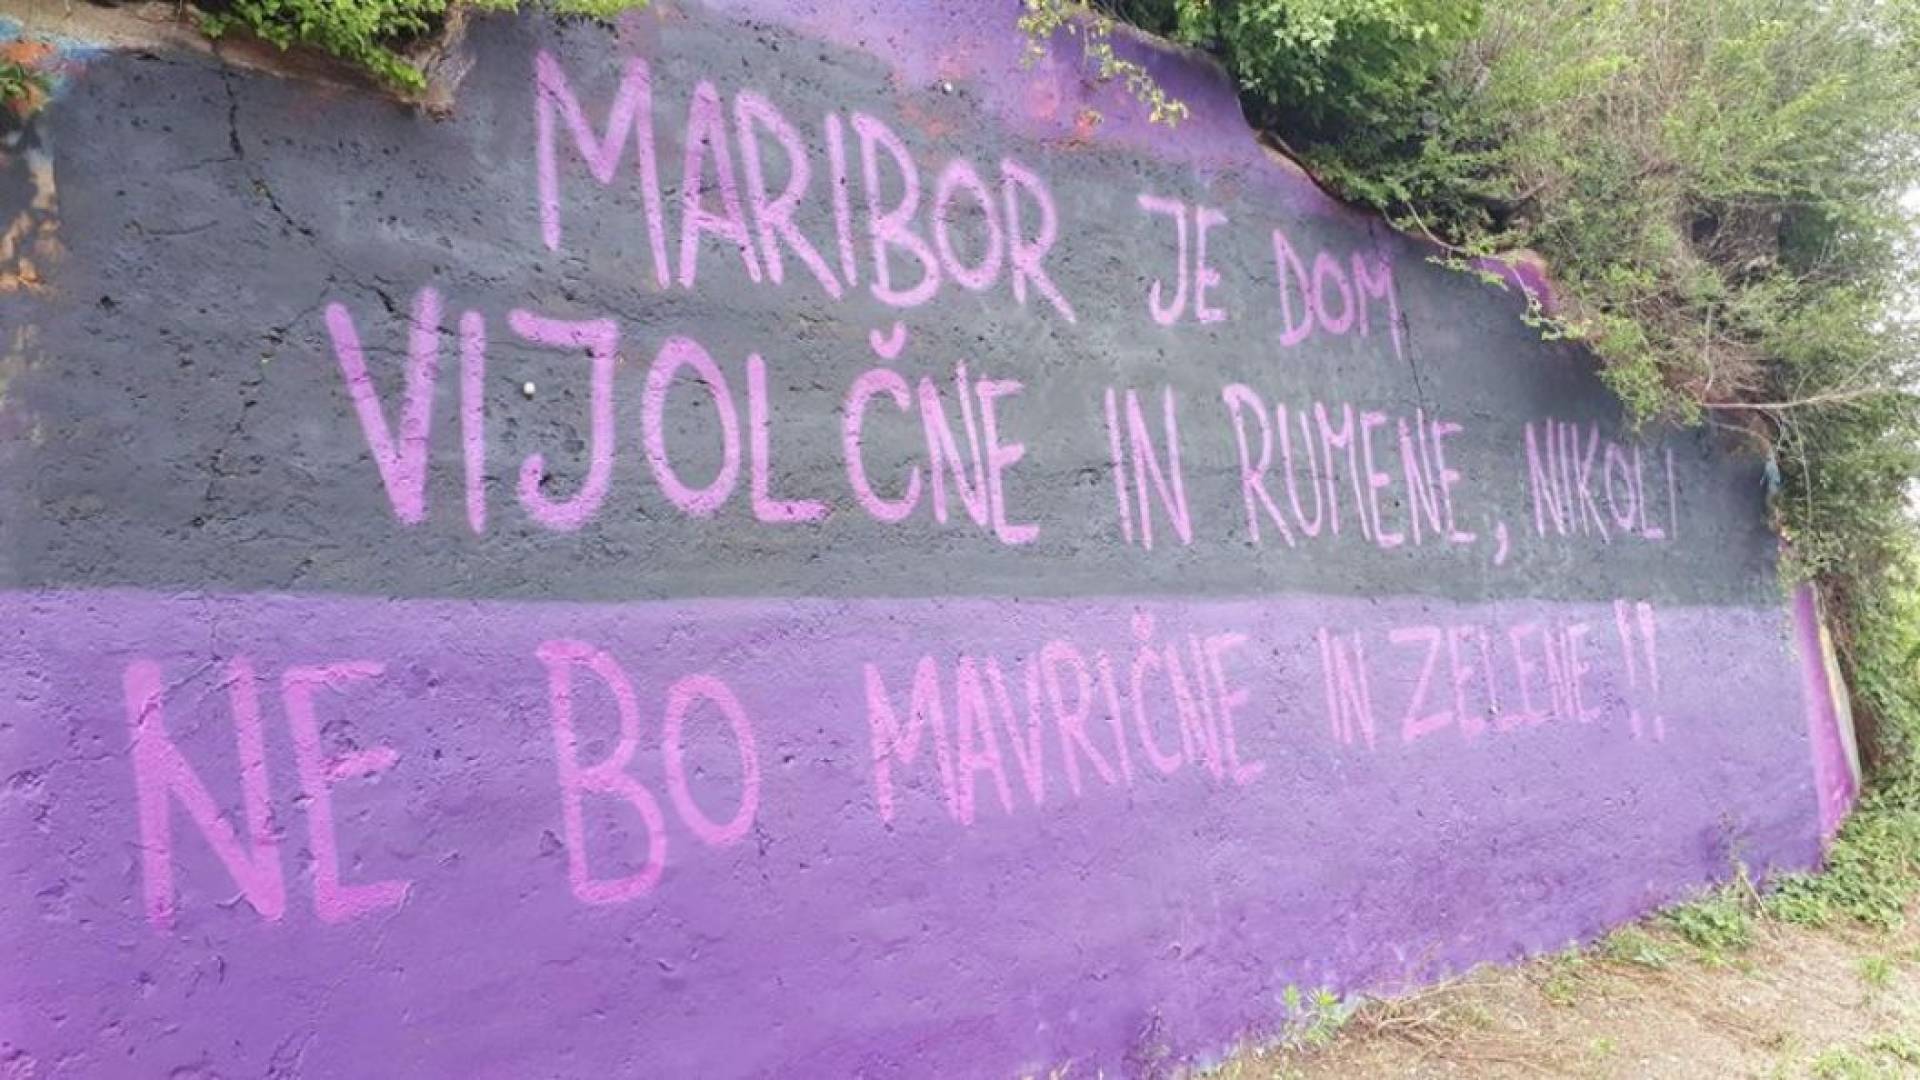 MARIBOR JE DOM
VIJOLČNE IN RUMENE, NIKOLI
NE BO MAVRIČNE IN ZELENE!!